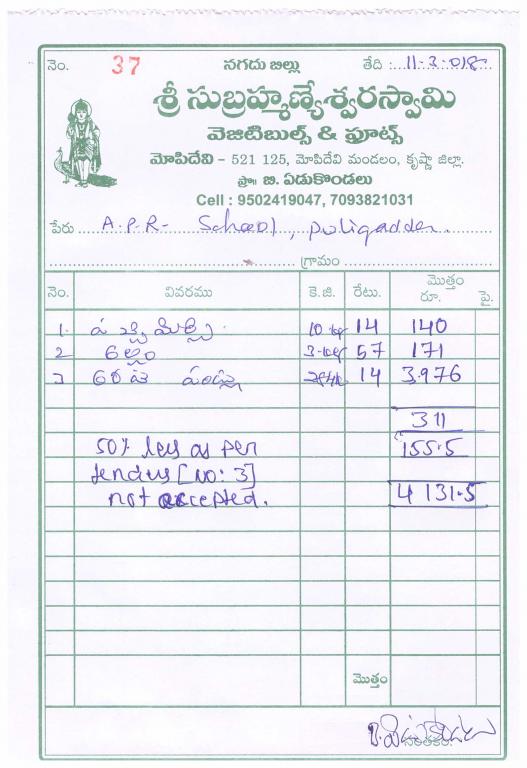 నెం. 37 నగదు బిల్లు తేది : 11-3-018
శ్రీ సుబ్రహ్మణ్యేశ్వరస్వామి
వెజిటిబుల్స్ & ఫ్రూట్స్
మోపిదేవి - 521 125, మోపిదేవి మండలం, కృష్ణా జిల్లా.
ప్రొ॥ బి. ఏడుకొండలు
Cell : 9502419047, 7093821031
పేరు A.P.R- School, puligadda.
గ్రామం
నెం. వివరము కె.జి. రేటు. మొత్తం రూ. పై.
1. పచ్చిమిర్చి 10 kg 14 140
2 అల్లం 3-kg 57 171
3 అరటి పండ్లు 284kg 14 3976
311
50% less as per 155.5
tenders [NO: 3]
not accepted. 4131.5
మొత్తం
సంతకం.